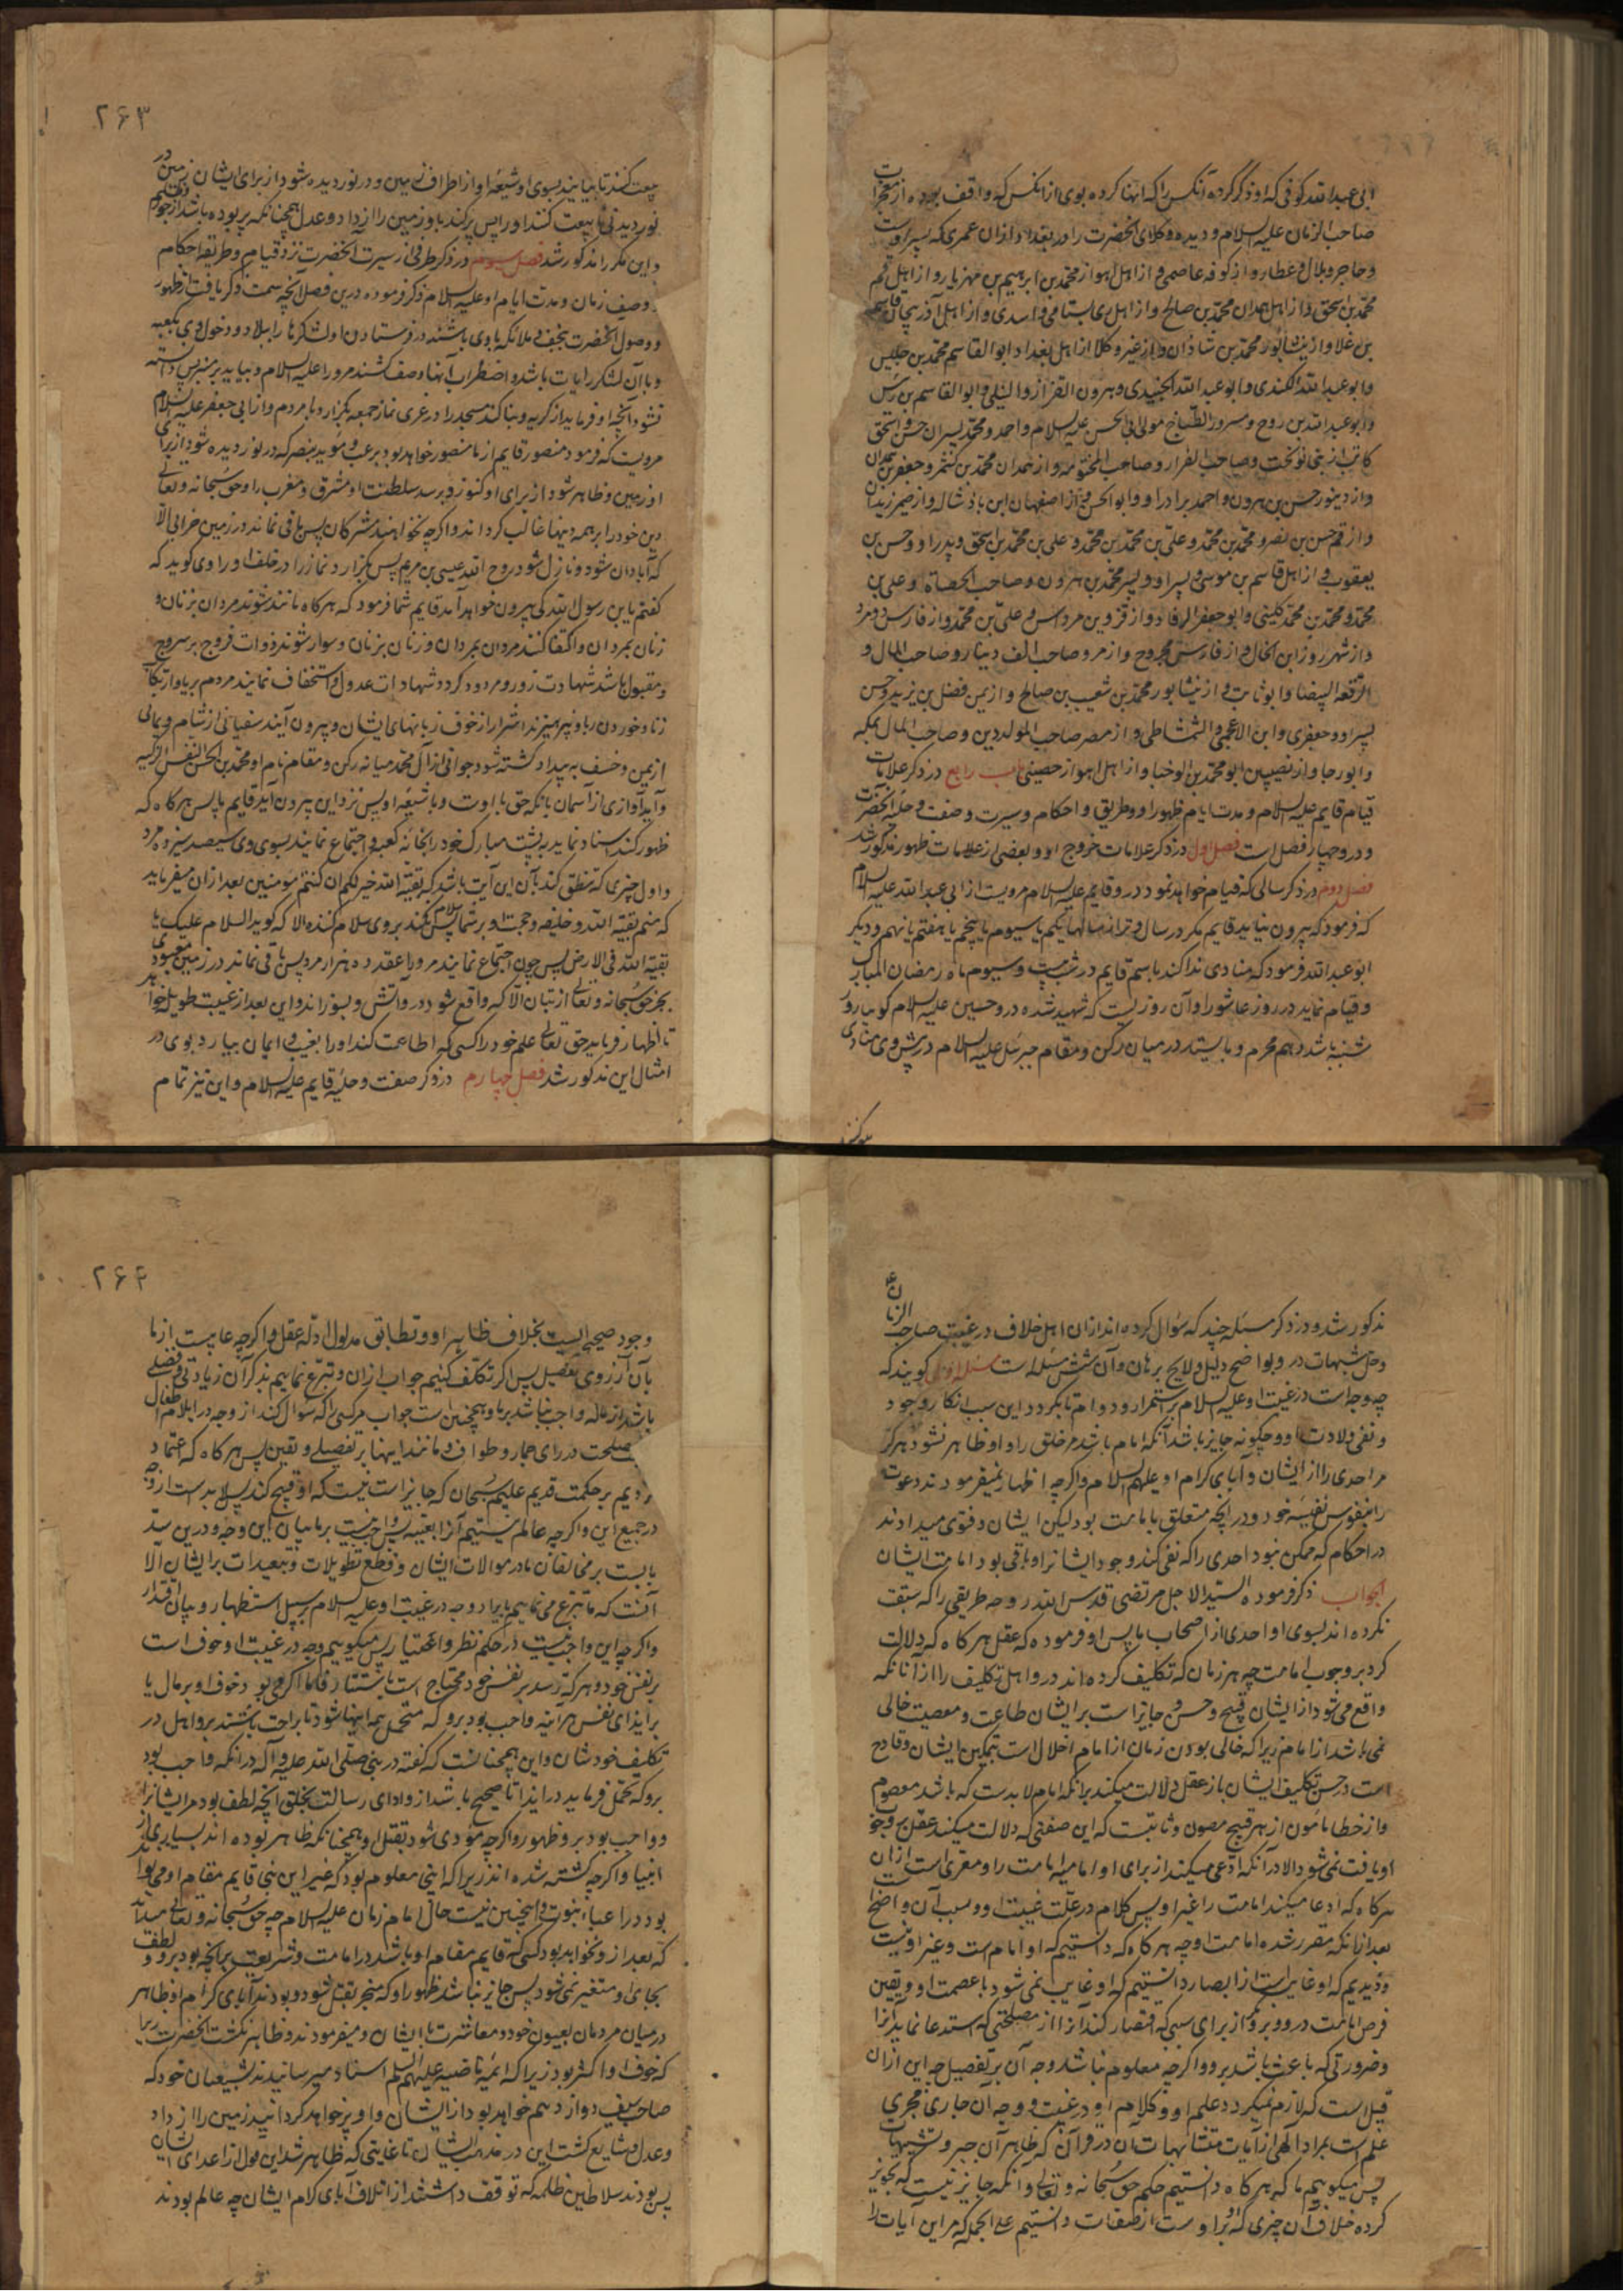 ابی عبدالله کوفی که او ذکر کرده آنکس را که انها کرده بوی از انکس که واقف بوده از معجزات
صاحب الزمان علیه السلام و دیده وکلای آنحضرت را در بغداد از ان عمری که پسر اوست
و حاجز و بلالی و عطار و از کوفه عاصمی و از اهل اهواز محمد بن ابرهیم بن مهزیار و از اهل قم
محمد بن اسحق و از اهل همدان محمد بن صالح و از اهل ری بسامی و اسدی و از اهل آذربیجان قاسم
بن علا و از نیشابور محمد بن شاذان و از غیر وکلا از اهل بغداد ابوالقاسم محمد بن حلیس
و ابو عبدالله الکندی و ابو عبدالله الجنیدی و هرون القزاز والنیلی و ابو القاسم بن رئیس
و ابو عبدالله بن روح و مسرور الطباخ مولی ابی الحسن علیه السلام و احمد و محمد پسران حسن و اسحق
کاتب از بنی نوبخت و صاحب الفرا و صاحب المختومه و از همدان محمد بن کشمرد و جعفر بن حمدان
و از دینور حسن بن هرون و احمد برادر او و ابوالحسن و از اصفهان ابن باذشاله و از صیمر زیدان
و از قم حسن بن نصر و محمد بن محمد و علی بن محمد بن محمد و علی بن محمد بن اسحق و پدر او و حسن بن
یعقوب و از اهل قاسم بن موسی و پسر او و پسر محمد بن هرون و صاحب الحصاة و علی بن
محمد و محمد بن محمد کلینی و ابو جعفر الرفا و از قزوین مرداس و علی بن محمد و از فارس دو مرد
و از شهر روز ابن الخال و از فارس مجروح و از مرو صاحب الف دینار و صاحب المال و
الرقعه البیضا و ابو ثابت و از نیشابور محمد بن شعیب بن صالح و از یمن فضل بن یزید و حسن
پسر او و جعفری و ابن الاعجمی و الشمشاطی و از مصر صاحب المولودین و صاحب المال بمکه
و ابو رجا و از نصیبین ابو محمد بن الوجنا و از اهل اهواز حصینی باب رابع در ذکر علامات
قیام قایم علیه السلام و مدت ایام ظهور او و طریق و احکام و سیرت و صفت و حلیه آنحضرت
و در و چهار فصل است فصل اول در ذکر علامات خروج او و بعضی از علامات ظهور مذکور شد
فصل دوم در ذکر سالی که قیام خواهد نمود در و قایم علیه السلام مرویست از ابی عبدالله علیه السلام
که فرمود که بیرون نیاید قایم مگر در سال وتر از سالها یکم یا سیوم یا پنجم یا هفتم یا نهم و دیگر
ابو عبدالله فرمود که منادی ندا کند باسم قایم در شب بیست و سیوم ماه رمضان المبارک
و قیام نماید در روز عاشورا و آن روزیست که شهید شده در و حسین علیه السلام گویا روز
شنبه باشد دهم محرم و بایستد در میان رکن و مقام جبرئیل علیه السلام در پیش وی منادی
۲۶۳
بیعت کنند تا بیایند بسوی او شیعه او از اطراف زمین و در نوردیده شود از برای ایشان زمین در
نوردیدنی تا بیعت کنند او را پس پر کند باو زمین را از داد و عدل همچنانکه پر بوده باشد از جور و ظلم
و این مکررا مذکور شد فصل سیوم در ذکر طرفی از سیرت آنحضرت نزد قیام وی و طریقه احکام
وصف زمان و مدت ایام او علیه السلام ذکر فرموده درین فصل آنچه سمت ذکر یافت از ظهور
و وصول آنحضرت بنجف و ملائکه با وی باشند و فرستادن او لشکرها را ببلاد و دخول وی بکعبه
و با آن لشکر رایات باشد و اضطراب آنها و صف کشند مر او را علیه السلام و بیاید بر منبر پس دانسته
نشود آنچه او فرماید از گریه و بنا کند مسجد را در غری نماز جمعه بگزارد با مردم و از ابی جعفر علیه السلام
مرویست که فرمود منصور قایم از ما منصور خواهد بود برعب و موید بنصر که در نوردیده شود از برای
او زمین و ظاهر شود از برای او کنوز و برسد سلطنت او مشرق و مغرب را و حق سبحانه و تعالی
دین خود را بر همه دینها غالب گرداند و اگرچه نخواهند مشرکان پس باقی نماند در زمین خرابی الا
که آبادان شود و نازل شود روح الله عیسی بن مریم پس بگزارد نماز را در خلف او راوی گوید که
گفتم یا بن رسول الله کی بیرون خواهد آمد قایم شما فرمود که هرگاه مانند شوند مردان بزنان و
زنان بمردان و اکتفا کنند مردان بمردان و زنان بزنان و سوار شوند ذوات فروج بر سروج
و مقبول باشد شهادت زور و مردود گردد شهادات عدول و استخفاف نمایند مردم بریا و ارتکاب
زنا و خوردن ربا و بپرهیزند اشرار از خوف زبانهای ایشان و بیرون آیند سفیانی از شام و یمانی
از یمن و خسف به بیدا و کشته شود جوانی از آل محمد میانه رکن و مقام نام او محمد بن الحسن النفس الزکیه
و آید آوازی از آسمان بانکه حق با اوست و با شیعه او پس نزد این بیرون آید قایم ما پس هرگاه که
ظهور کند اسناد نماید به پشت مبارک خود را بخانه کعبه و اجتماع نمایند بسوی وی سیصد سیزده مرد
و اول چیزی که تنطق کند بآن این آیت باشد که بقیة الله خیر لکم ان کنتم مومنین بعد از ان میفرماید
که منم بقیة الله و خلیفه و حجت او بر شما پس سلام نکند بر وی سلام کننده الا که گوید السلام علیک یا
بقیة الله فی الارض پس چون اجتماع نمایند مر او را عقد ده هزار مرد پس باقی نماند در زمین معبودی
بجز حق سبحانه و تعالی از بتان الا که واقع شود در و آتش و بسوزاند و این بعد از غیبت طویل خواهد بود
تا اظهار فرماید حق تعالی علم خود را کسی که اطاعت کند او را بغیب و ایمان بیارد بوی در
امثال این مذکور شد فصل چهارم در ذکر صفت و حلیه قایم علیه السلام و این نیز تمام
مذکور شد و در ذکر مسئله چند که سؤال کرده اند از ان اهل خلاف در غیبت صاحب الزمان
و حل شبهات در و بواضح دلیل و لایح برهان و آن شش مسئله است مسئله اولی گویند که
چه وجه است در غیبت او علیه السلام بر استمرار و دوام تا بگردد این سبب انکار وجود
و نفی ولادت او و چگونه جایز باشد آنکه امام باشد مر خلق را و او ظاهر نشود هرگز
مر احدی را از ایشان و آبای کرام او علیهم السلام و اگرچه اظهار نمیفرمودند دعوت
را بنفوس نفیسه خود و در آنچه متعلق بامامت بود لیکن ایشان فتوی میدادند
در احکام که ممکن نبود احدی را که نفی کند وجود ایشانرا و باقی بود امامت ایشان
الجواب ذکر فرموده السید الاجل مرتضی قدس الله روحه طریقی را که سبقت
نکرده اند بسوی او احدی از اصحاب ما پس او فرموده که عقل هرگاه که دلالت
کرد بر وجوب امامت چه هر زمان که تکلیف کرده اند در و اهل تکلیف را از آنانکه
واقع می شود از ایشان قبیح و حسن و جایز است بر ایشان طاعت و معصیت خالی
نمی باشد از امام زیرا که خالی بودن زمان از امام اخلال است بتمکین ایشان و قادح
است در حسن تکلیف ایشان باز عقل دلالت میکند برانکه امام لابدست که باشد معصوم
و از خطا مامون از هر قبیح مصون و ثابتست که این صفتی که دلالت میکند عقل بر وجوب
او یافت نمی شود الا در آنکه ادعی میکند از برای او امامیه امامت را و معری است از ان
هر کاه که ادعا میکند امامت را غیر او پس کلام در علت غیبت او و سبب آن واضح است
بعد ازانکه مقرر شده امامت او چه هرگاه که دانستیم که او امام است و غیر او نیست
و دیدیم که او غایب است از ابصار دانستیم که او غایب نمی شود با عصمت او و یقین
فرض امامت در و و برو از برای سببی که اقتضا کند آنرا از مصلحتی که استدعا نماید آنرا
و ضرورتی که باعث باشد برو و اگرچه معلوم نباشد وجه آن بر تفصیل چه این از ان
قبیل است که لازم نمیگردد علم او و کلام او در غیبت و وجه آن جاری مجری
علم است بمراد الهی از آیات متشابهات آن در قرآن که ظاهر آن جبر و تشبیهات
پس میگوییم ما که هرگاه دانستیم حکم حق سبحانه و تعالی و آنکه جایز نیست که تجویز
کرده خلاف آن چیزی که بر اوست از صفات دانستیم علی الجمله که مر این آیات را
۲۶۴
وجود صحیح الیست بخلاف ظاهر او و تطابق مدلول ادله عقل و اگرچه غایبست از ما
بآن آرزوی تفصیل پس اگر تکلف کنیم جواب از ان و تبرع نماییم بذکر آن زیادتی و فضلی
باشد از ما و واجب نباشد بر ما و همچنین است جواب مر کسی را که سؤال کند از وجه در ایلام اطفال
مصلحت در رای جمار و طواف و مانند اینها بر تفصیل و تعین پس هرگاه که اعتماد
کردیم بر حکمت قدیم علیم سبحان که جایز است نیست که او قبیح کند پس لابد است از وجه
در جمیع این و اگرچه عالم نیستیم آنرا بعینه و واجب نیست بر ما بیان این وجه و درین سد
بابست بر مخالفان ما در سوالات ایشان و قطع تطویلات و تبعیدات بر ایشان الا
آنست که ما تبرع می نماییم بایراد وجه در غیبت او علیه السلام بر سبیل استظهار و بیان اقتدار
و اگرچه این واجب نیست در حکم نظر و اعتبار پس میگوییم وجه در غیبت او خوف است
بر نفس خود و هر که ترسد بر نفس خود محتاج است باستتار فاما اگر می بود خوف او بر مال یا
بر ایذای نفس هر آینه واجب بود برو که متحمل همه اینها شود تا براحت باشند برو اهل در
تکلیف خودشان و این همچنانست که گفته در نبی صلی الله علیه و آله در انکه واجب بود
برو که تحمل فرماید در ایذا تا صحیح باشد ازو ادای رسالت بخلق آنچه لطف بود مر ایشانرا
و واجب بود برو ظهور و اگرچه مودی شود بقتل او همچنانکه ظاهر بوده اند بسیاری از
انبیا و اگرچه کشته شده اند زیرا که اینی معلوم بود که غیر این نبی قایم مقام او می تواند
بود در اعباء نبوت و همچنین نیست حال امام زمان علیه السلام چه حق سبحانه و تعالی میداند
که بعد از و نخواهد بود کسی که قایم مقام او باشد در امامت و شریعت برآنچه بود برو و لطف
بجای او متغیر نمی شود پس جایز نباشد ظهور او که منجر بقتل شود و بودند آبای کرام او ظاهر
در میان مردمان بعیون خود و معاشرت با ایشان و میفرمودند و ظاهر نگشت آنحضرت زیرا
که خوف او اکثر بود زیرا که ائمه ماضیه علیهم السلم اسناد میرسانیدند بشیعیان خود که
صاحب سیف دوازدهم خواهد بود از ایشان و او پر خواهد گردانید زمین را از داد
و عدل و شایع گشت این در مذهب ایشان تا غایتی که ظاهر شد این قول از اعدای ایشان
پس بودند سلاطین ظلمه که توقف داشتند از اتلاف آبای کرام ایشان چه عالم بودند